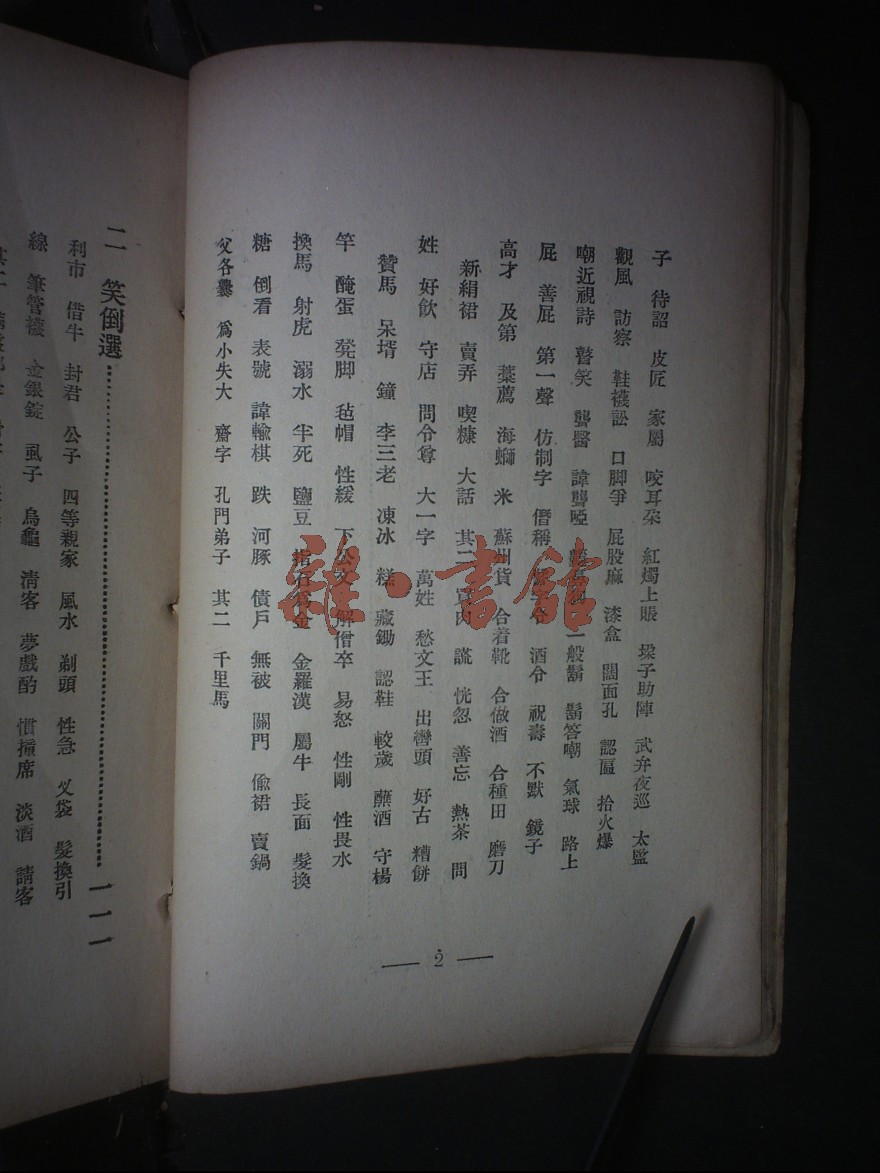 子　待詔　皮匠　家屬　咬耳朶　紅燭上賬　垛子助陣　武弁夜巡　太監
觀風　訪察　鞋襪訟　口脚爭　屁股麻　漆盒　闊面孔　認匾　拾火爆
嘲近視詩　瞽笑　聾醫　諱聾啞　一般鬍　鬍答嘲　氣球　路上
屁　善屁　第一聲　仿制字　僭稱　酒令　祝壽　不默　鏡子
高才　及第　藁薦　海螄　米　蘇州貨　合着靴　合做酒　合種田　磨刀
新絹裙　賣弄　喫糠　大話　其二　買肉　謊　恍忽　善忘　熱茶　問
姓　好飲　守店　問令尊　大一字　萬姓　愁文王　出轡頭　好古　糟餅
贊馬　呆壻　鐘　李三老　凍冰　糕　藏鋤　認鞋　較歲　蘸酒　守楊
竿　醃蛋　凳脚　毡帽　性緩　下公文　解僧卒　易怒　性剛　性畏水
換馬　射虎　溺水　半死　鹽豆　指石爲金　金羅漢　屬牛　長面　髮換
糖　倒看　表號　諱輸棋　跌　河豚　債戶　無被　關門　偸裙　賣鍋
父各爨　爲小失大　齋字　孔門弟子　其二　千里馬
— 2 —
二　笑倒選……一一一
利市　借牛　封君　公子　四等親家　風水　剃頭　性急　叉袋　髮換引
線　筆管襪　金銀錠　虱子　烏龜　淸客　夢戲酌　慣撞席　淡酒　請客
雜·書館